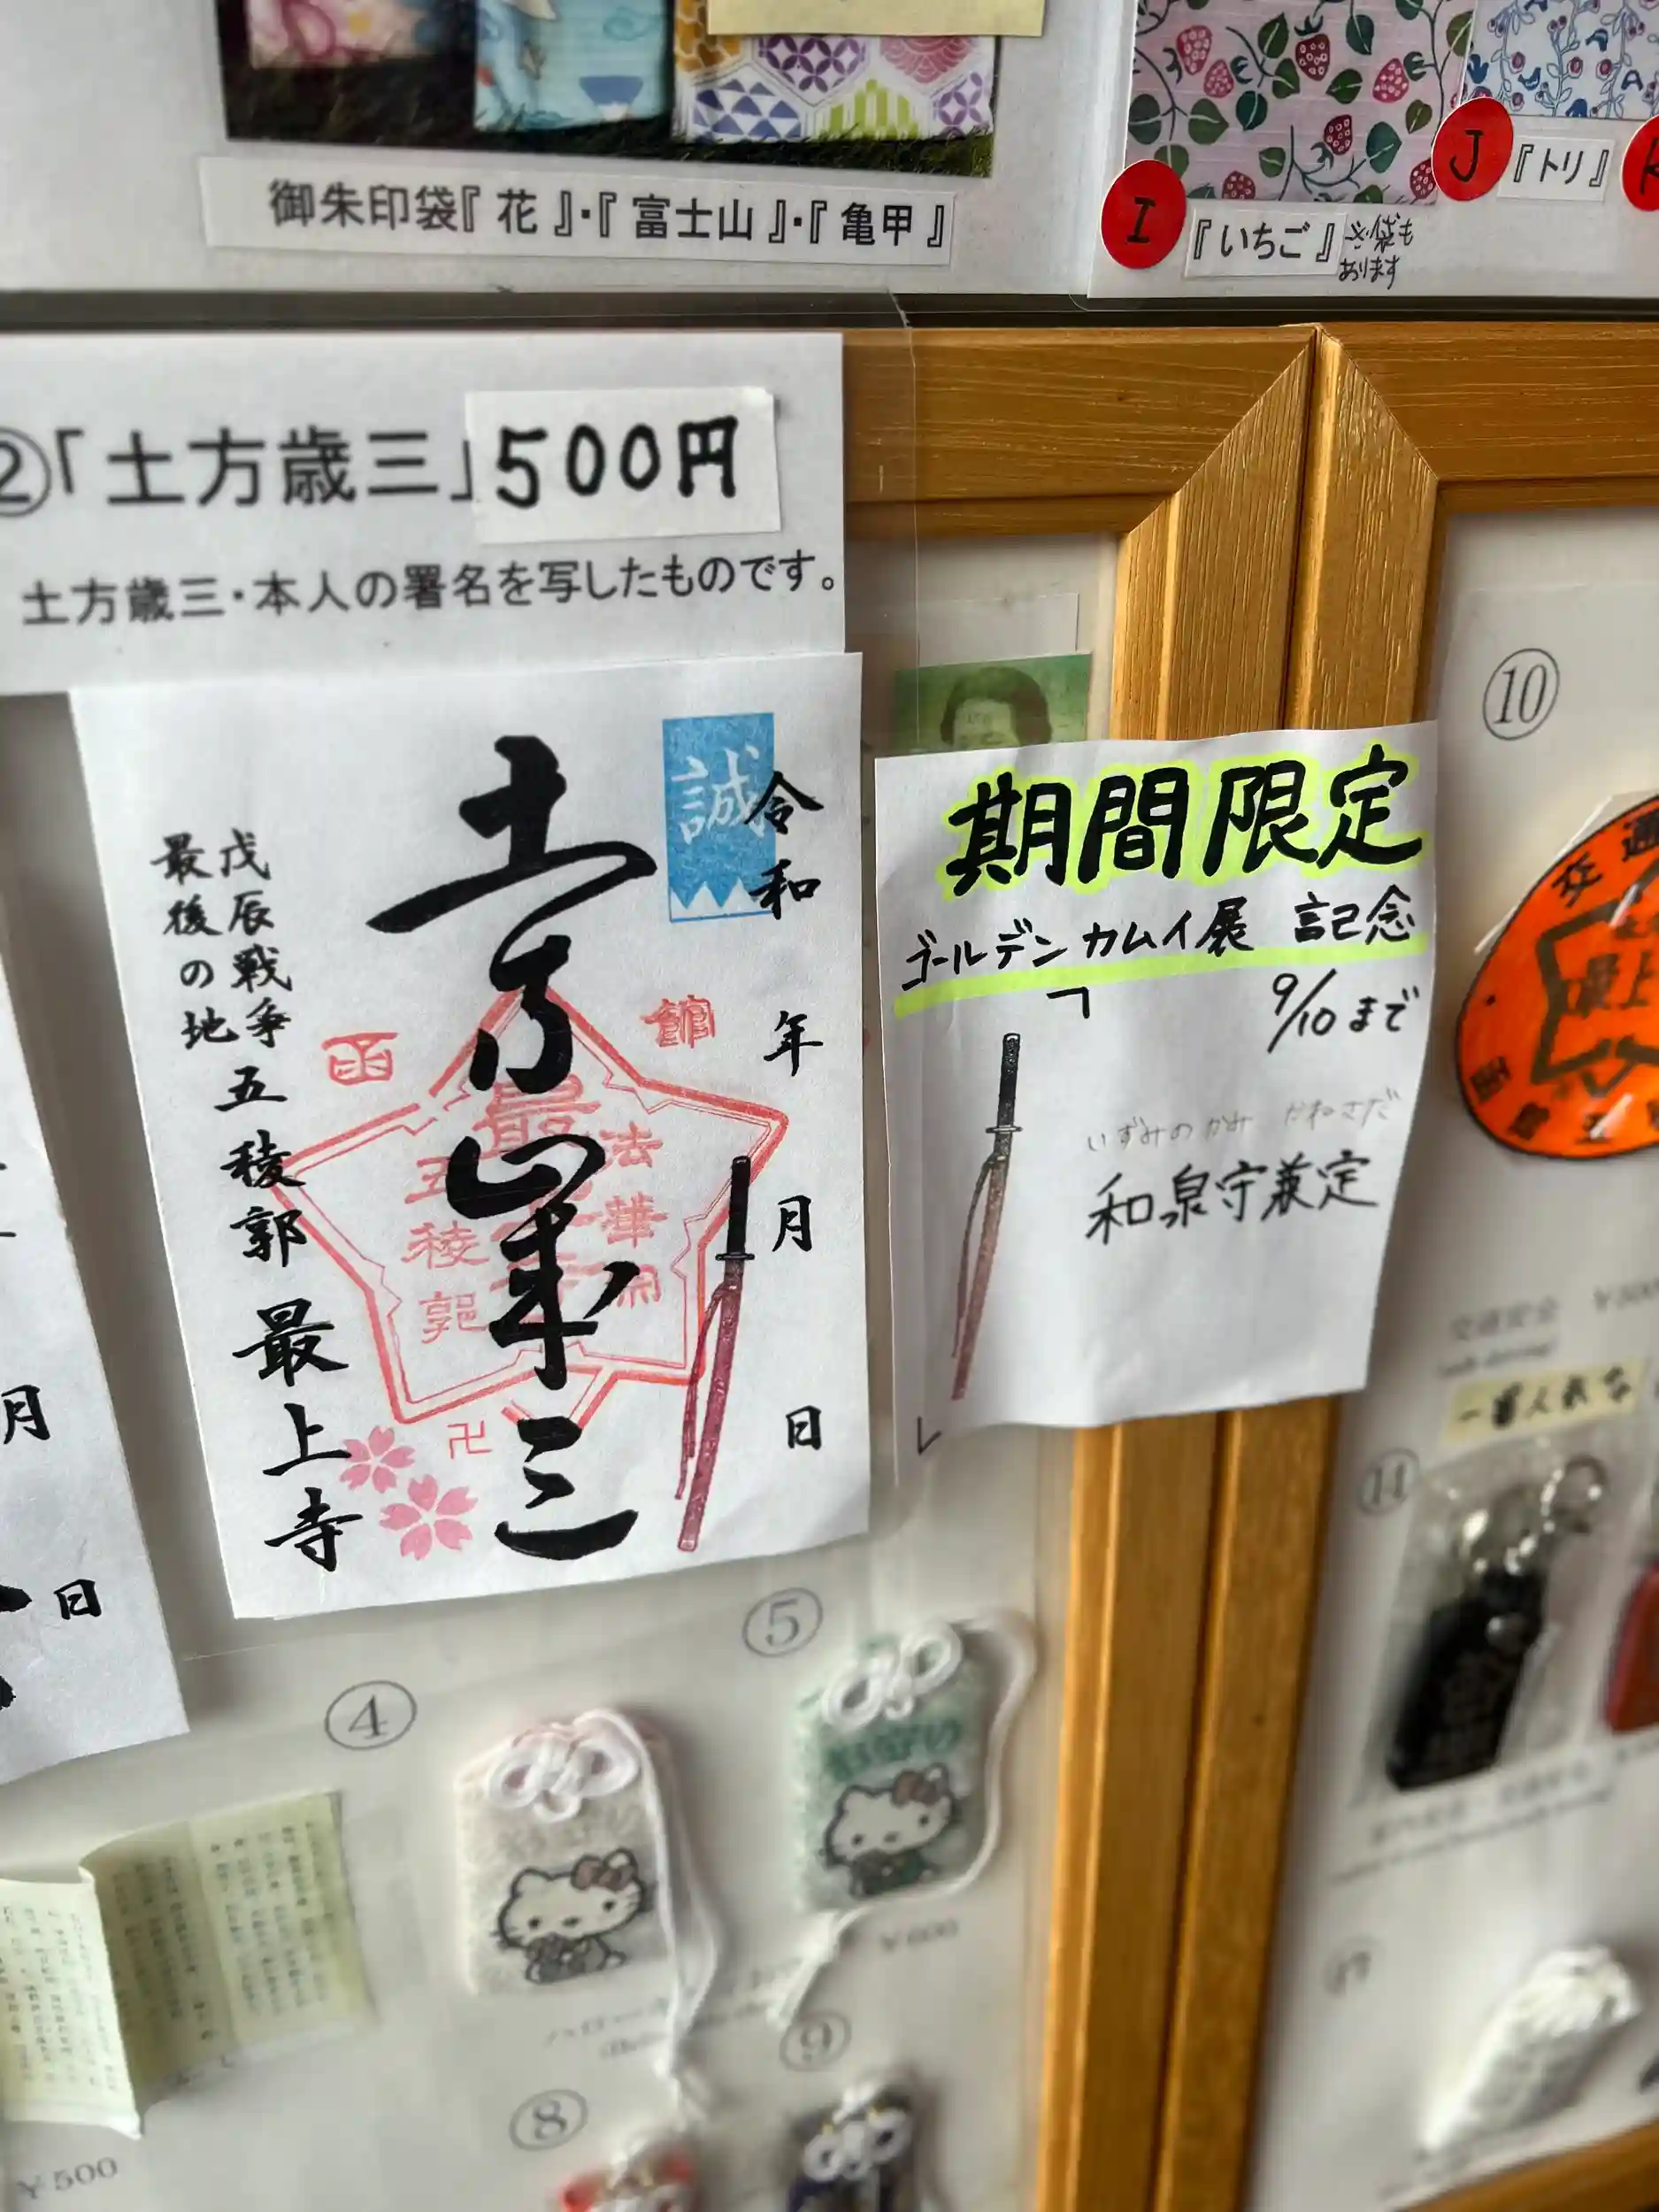 御朱印袋『 花 』・『 富士山 』・『 亀甲 』
I
『いちご』
J
『トリ』
②「土方歳三」500円
土方歳三・本人の署名を写したものです。
誠
令和 年 月 日
土方歳三
函
館
最
法華
五稜郭
卍
戊辰戦争
最後の地
五稜郭
最上寺
月
日
期間限定
ゴールデンカムイ展 記念
9/10まで
いずみのかみ かねさだ
和泉守兼定
⑩
交通
最上
④
⑤
¥600
⑧
⑨
⑪
¥500